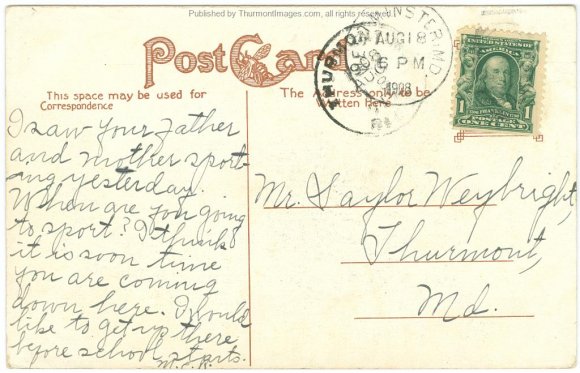 Published by ThurmontImages.com, all rights reserved.
Post Card
This space may be used for
Correspondence
The Address only to be
written here
WESTMINSTER, MD.
AUG 18
6 PM
1908
THURMONT
UNITED STATES OF
AMERICA
FRANKLIN
1 POSTAGE 1
ONE CENT
I saw your father
and mother sport-
ing yesterday.
When are you going
to sport? I think
it is soon time
you are coming
down here. I would
like to get up there
before school starts.
M.C.K.
Mr. Saylor Weybright,
Thurmont,
Md.